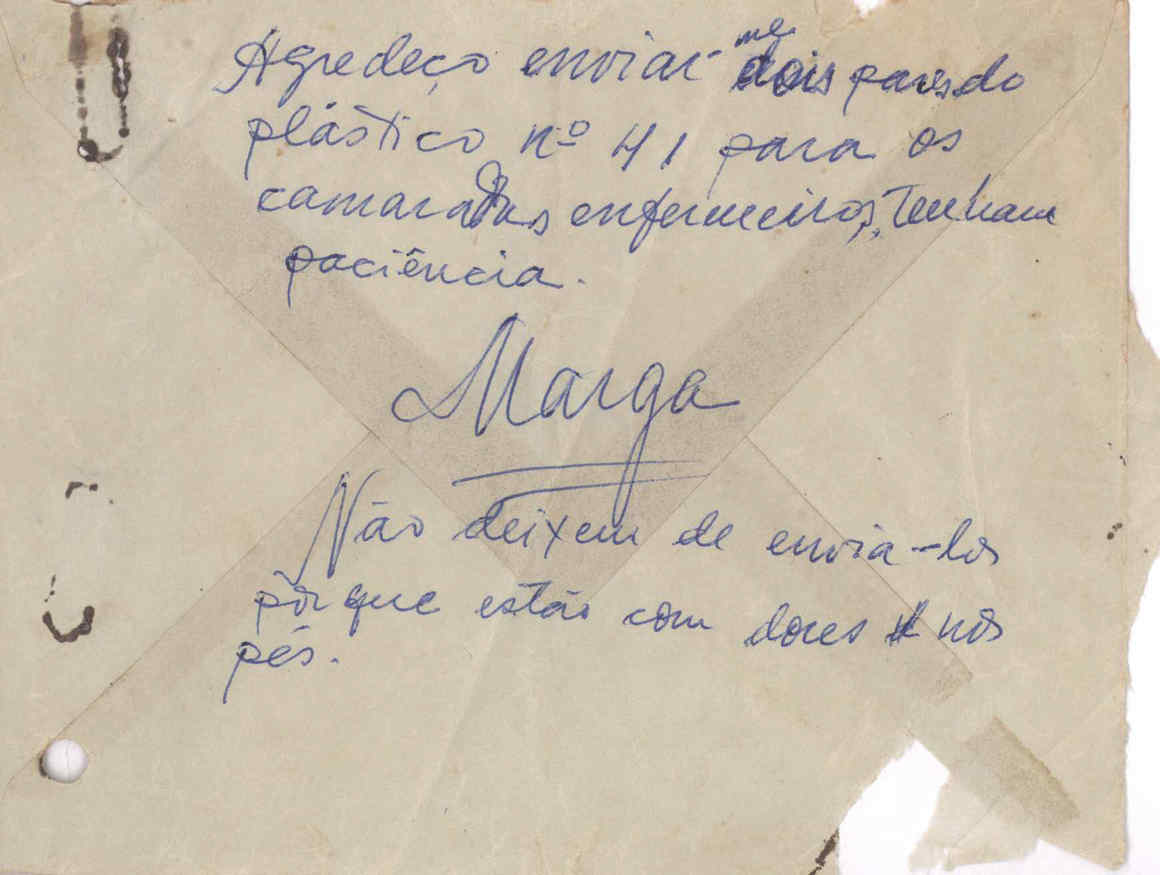 Agredeço enviar-me dois pares do
plástico nº 41 para os
camaradas enfermeiros, Tenham
paciência.
Marga
Não deixem de envia-los
pòrque estão com dores nos
pés.